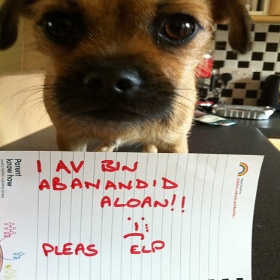 I AV BIN
ABANANDID
ALOAN!!
PLEAS ELP
Parent
know how